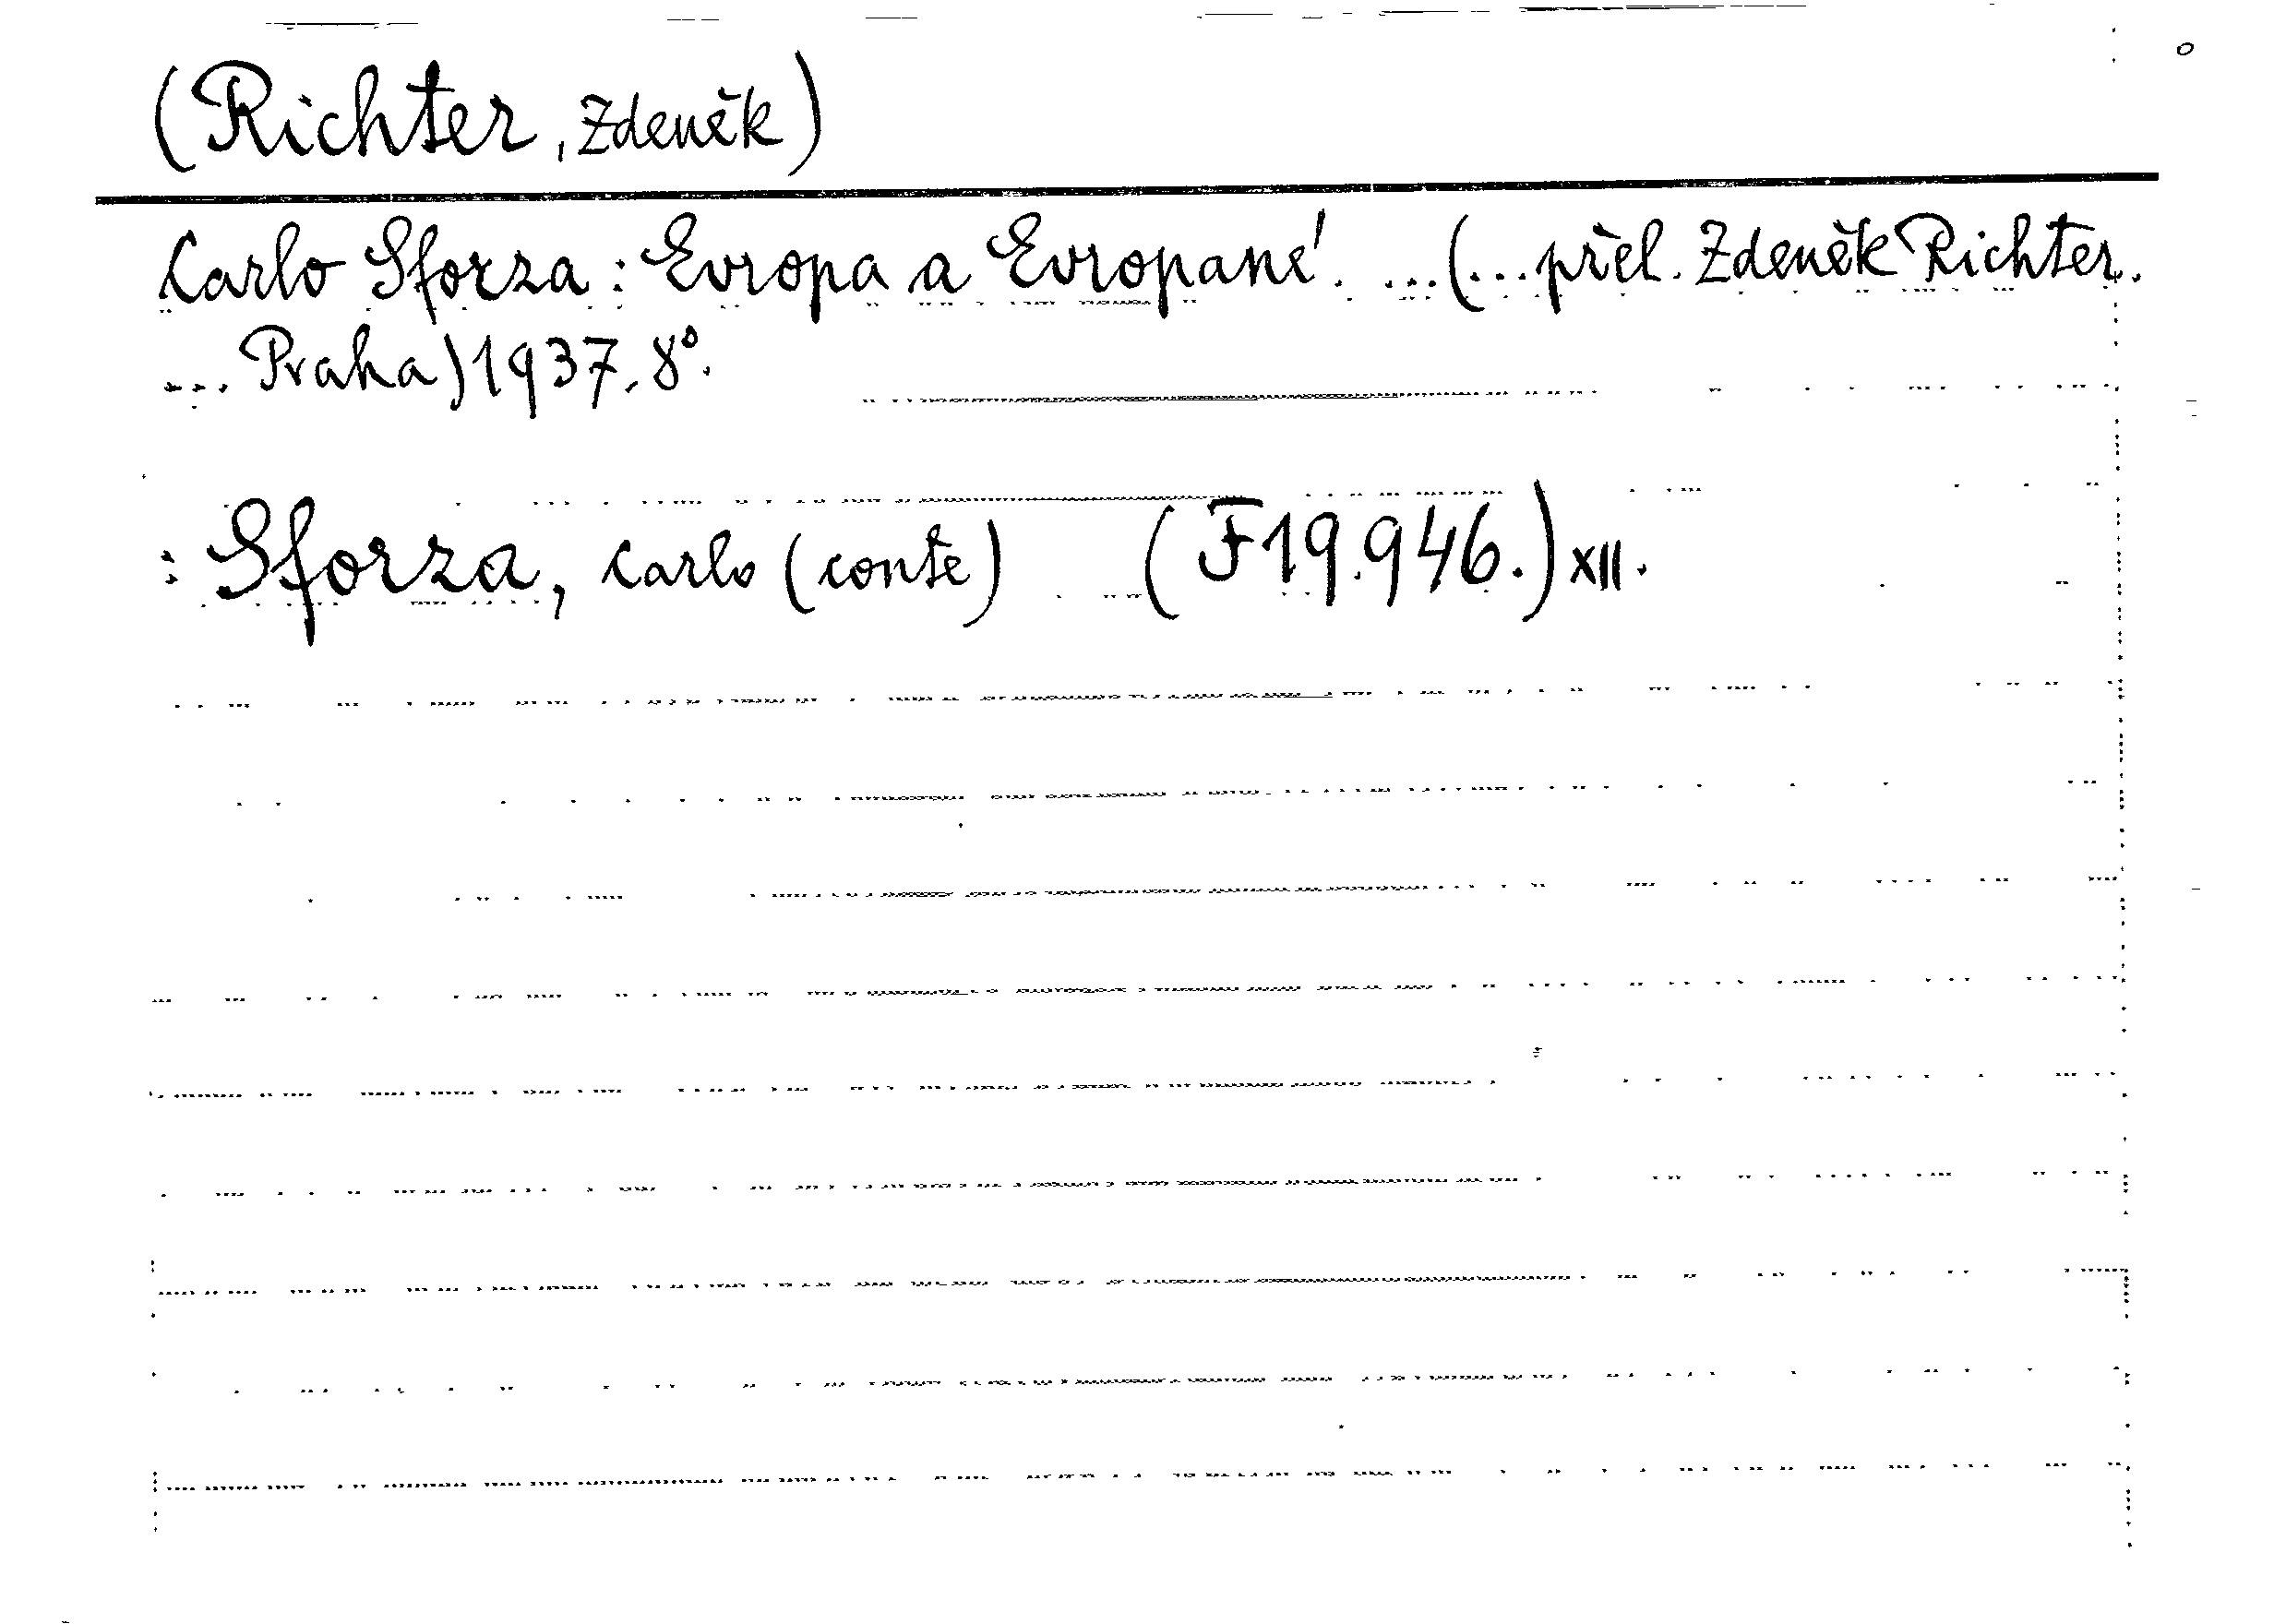 (Richter, Zdeněk)
Carlo Sforza: Evropa a Evropané. ...(...přel. Zdeněk Richter.
... Praha) 1937. 8°.
: Sforza, Carlo (conte) (F 19.946.) XII.